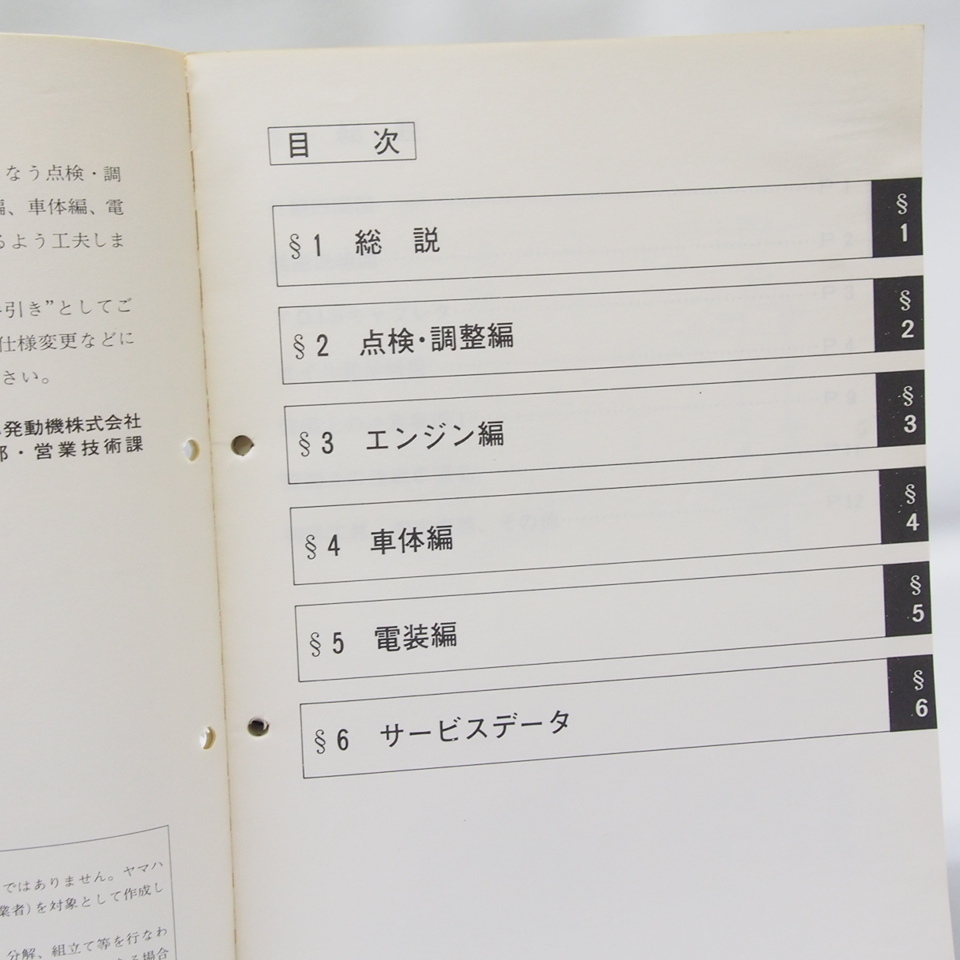 なう点検・調
編、車体編、電
るよう工夫しま
引き”としてご
仕様変更などに
さい。
発動機株式会社
部・営業技術課
ではありません。ヤマハ
業者)を対象として作成し
分解、組立て等を行なわ
る場合
目 次
§1 総 説
§
1
§2 点検・調整編
§
2
§3 エンジン編
§
3
§4 車体編
§
4
§5 電装編
§
5
§6 サービスデータ
§
6